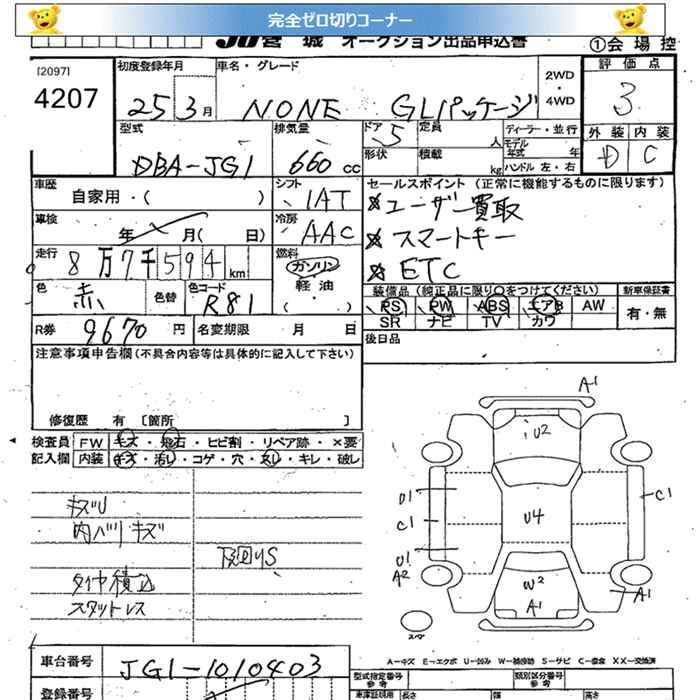 完全ゼロ切りコーナー
JU宮城 オークション出品申込書 ①会場控
[2097]
4207
初度登録年月
25 3月
車名・グレード
NONE GLパッケージ
2WD
・
4WD
評価点
3
型式
DBA-JG1
排気量
660 cc
ドア 5
定員 人
形状
積載 kg
ディーラー・並行
モデル年式 年
ハンドル 左・右
外装 内装
D C
車歴
自家用・( )
シフト
IAT
セールスポイント (正常に機能するものに限ります)
ユーザー買取
スマートキー
ETC
車検
年 月( 日)
冷房
AAC
走行
8万7千594km
燃料
ガソリン
軽油
・( )
色
赤
色替
色コード
R81
装備品 (純正品に限り○をつけてください)
新車保証書
PS PW ABS エアB AW
SR ナビ TV カワ
有・無
R券 9670円
名変期限 月 日
後日品
注意事項申告欄 (不具合内容等は具体的に記入して下さい)
修復歴 有 [箇所 ]
検査員 FW キズ・飛石・ヒビ割・リペア跡・×要
記入欄 内装 キズ・汚レ・コゲ・穴・スレ・キレ・破レ
キズU
内ベリキズ
下廻りS
タイヤ積込
スタットレス
A1
U2
U1
C1
U4
C1
U1
A2
W2
A1
A1
スペア
A−キズ E−エクボ U−凹み W−補修跡 S−サビ C−腐食 XX−交換済
車台番号 JG1-1010403
登録番号
型式指定番号
参考
類別区分番号
参考
車庫証明用
参考
長さ 幅 高さ